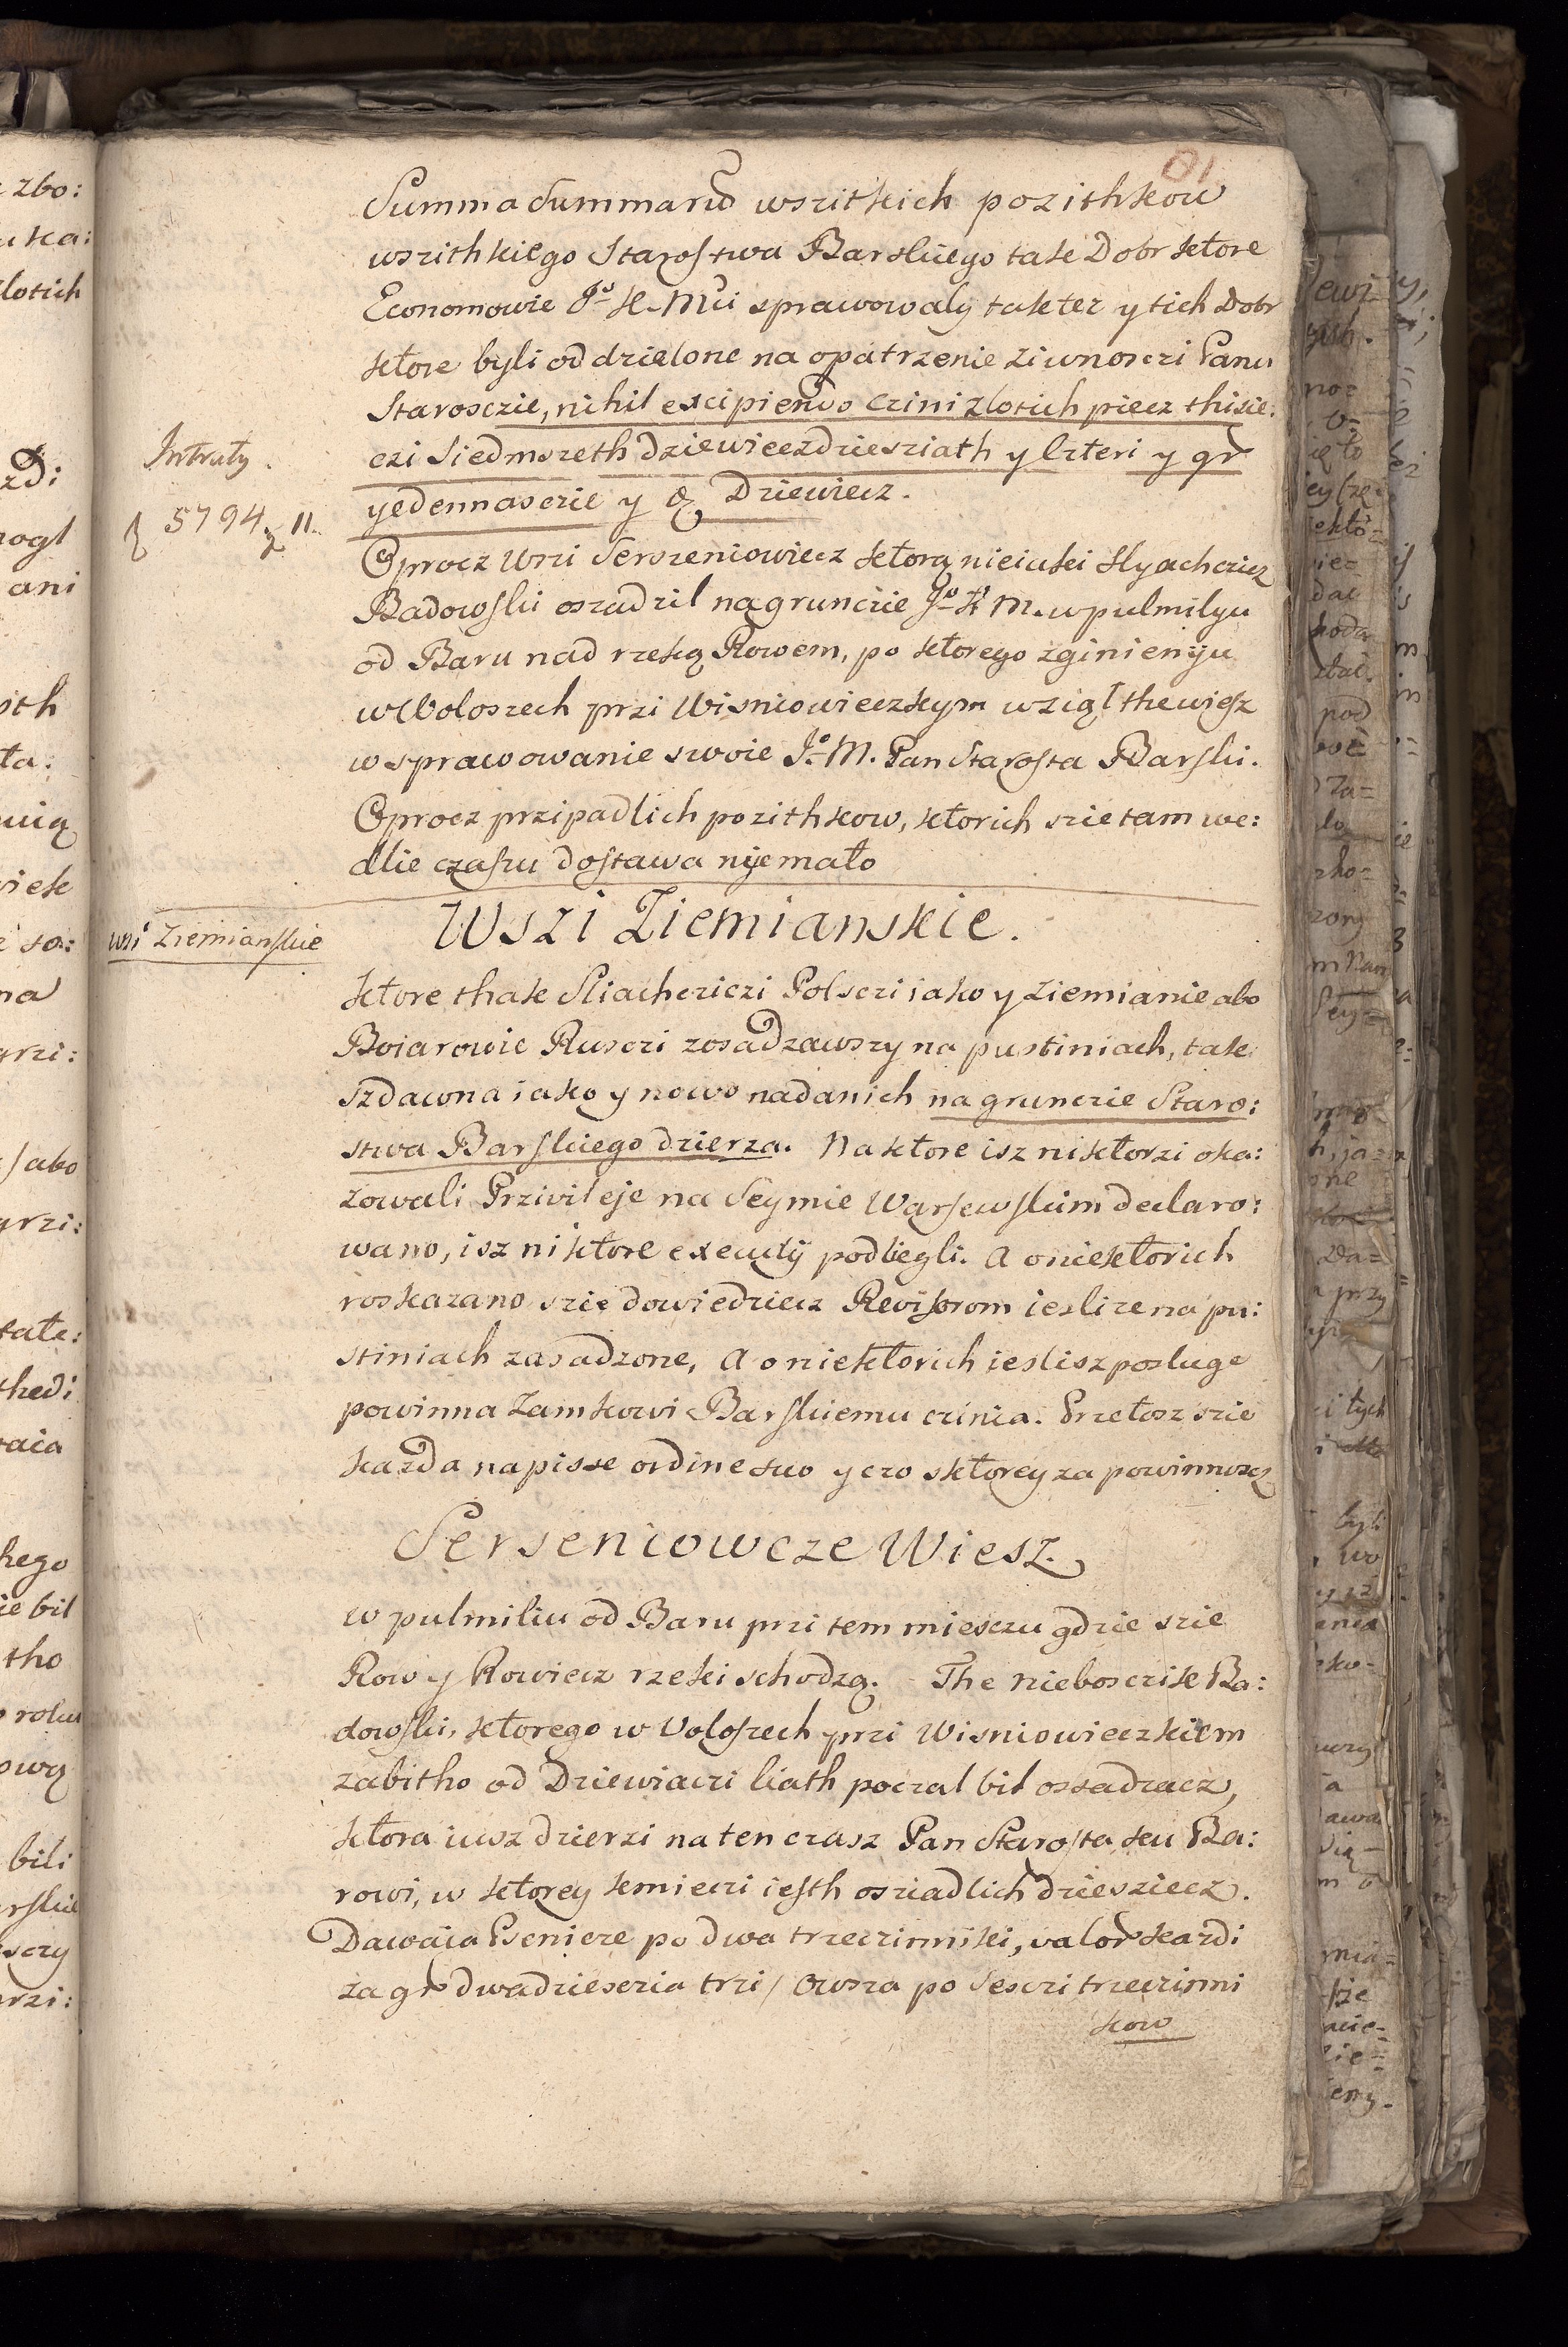 Summa Summaru wszitkich pozithkow
wszithkiego Starostwa Barskiego tak Dobr ktore
Economowie Jo K. Mci sprawowaly tak tez y tich Dobr
ktore byli oddzielone na opatrzenie ziwnosczi Panu
Starosczie, nihil excipiendo czini zlotich piecz thisie:
czi Siedmszeth dziewieczdziesziath y Czteri y gr
yedennasczie y d. Dziewiecz.
Intraty.
5794 g 11.
Oprocz Wszi Serszeniowiecz ktorą nieiaki Slyachczicz
Badowski oszadzil na grunczie Jo K M. w pulmilyu
od Baru nad rzeką Rowem, po ktorego zginienyu
w Woloszech przi Wisniowieczkym wziął the wiesz
w sprawowanie swoie Jo M. Pan Starosta Barski.
Oprocz przipadlich pozithkow, ktorich szie tam we:
dlie czaszu dostawa nyemało
wsi Ziemianskie
Wszi Ziemianskie.
ktore thak Sliachcziczi Polsczi iako y Ziemianie abo
Boiarowie Rusczi zosadzawszy na pustiniach, tak
szdawna iako y nowo nadanich na grunczie Staro:
stwa Barskiego dzierza. Na ktore isz niktorzi oka:
zowali Przivileje na Seymie Warsewskim declaro:
wano, isz niktore executy podliegli. A o niektorich
roskazano szie dowiedziecz Revisorom ieslize na pu:
stiniach zasadzone, A o niektorich ieslisz posluge
powinna Zamkowi Barskiemu czinia. Przetosz szie
każda napisse ordine suo y czo s ktorey za powinnoscz
Serseniowcze Wiesz.
w pulmiliu od Baru przi tem miesczu gdzie szie
Row y Rowiecz rzeki schodzą. The nieboscзik Ba:
dowski, ktorego w Voloszech przi Wisniowieczkiem
zabitho od Dziewiaczi liath poczal bil ossadzacz,
ktora iusz dzierzi na ten czasz Pan Starosta ku Ba:
rowi, w ktorey kmieczi iesth osziadlich dziesziecz.
Dawaia Psenicze po dwa trzeczinniki, valor kazdi
za gr dwadziesczia trzi / Owsza po Sesczi trzeczinni
kow